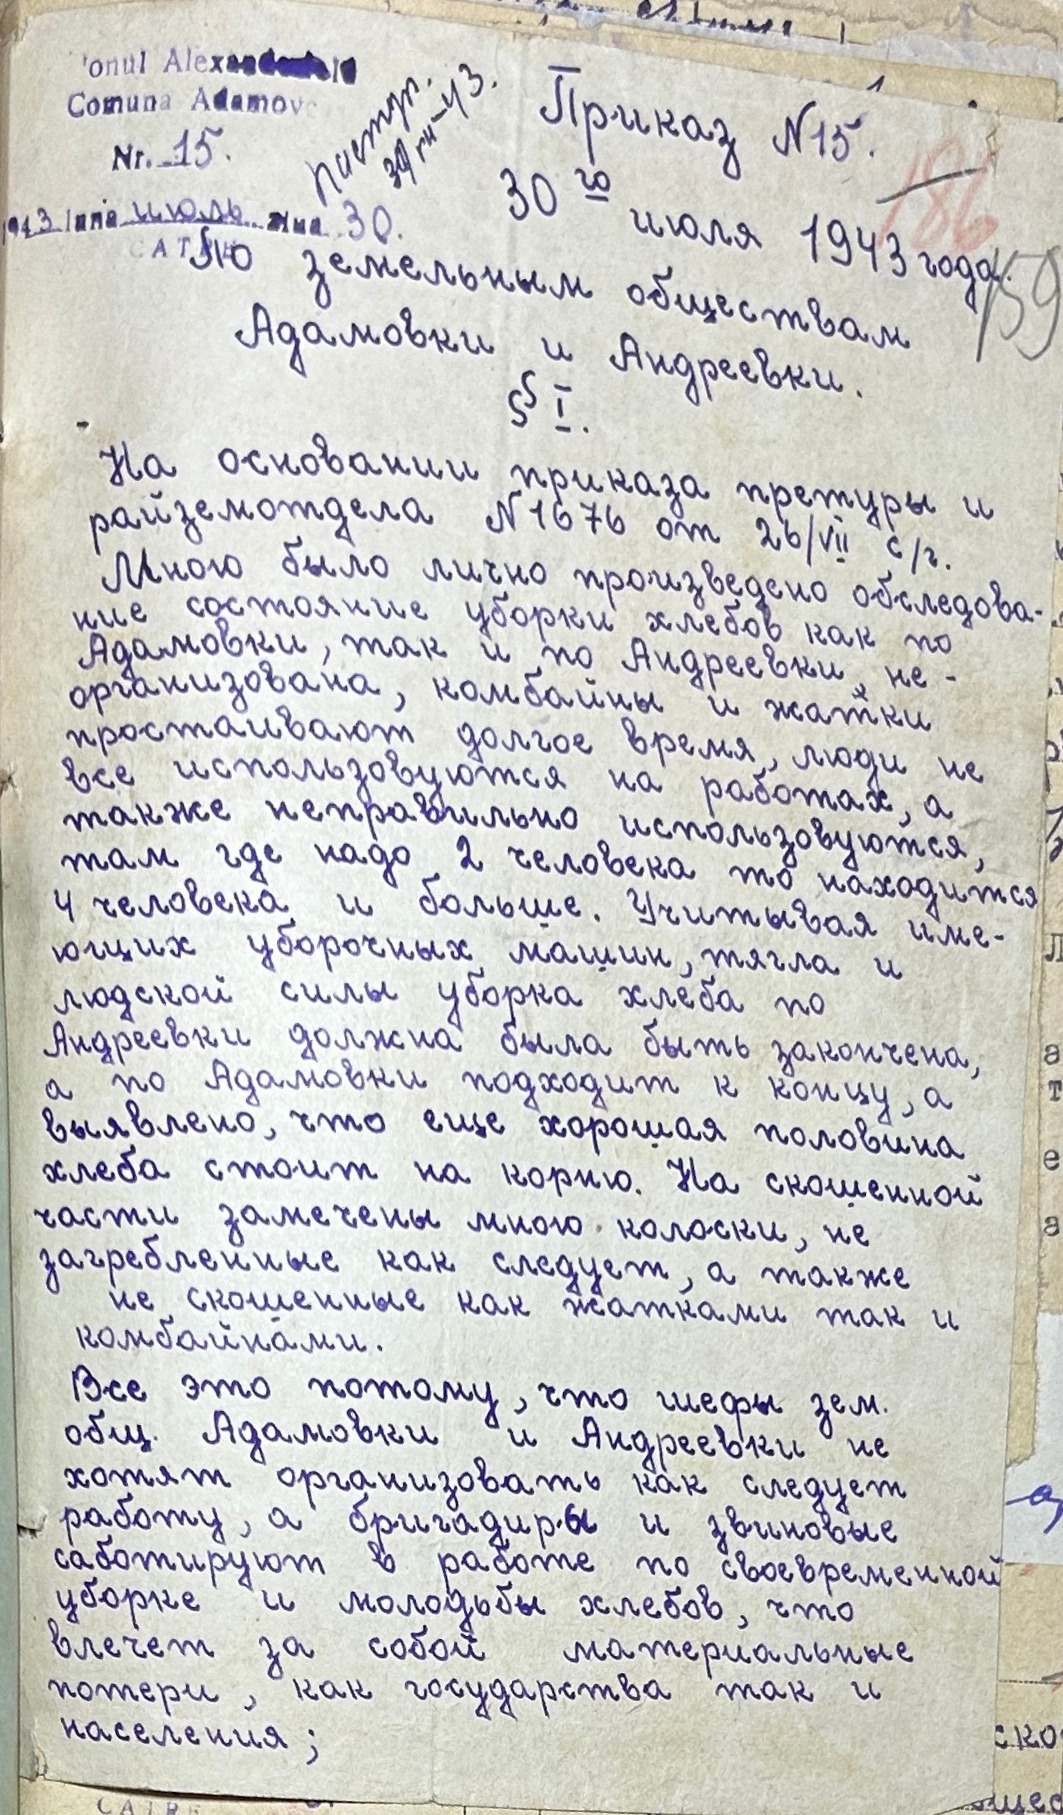 Comuna Adamov
Nr. 15.
1943 Luna июль Ziua 30.
CATRE
Приказ N15.
30го июля 1943 года.
186
159
По земельным обществам
Адамовки и Андреевки.
§ I.
На основании приказа претуры и
райземотдела N1676 от 26/VII с/г.
Мною было лично произведено обследова-
ние состояние уборки хлебов как по
Адамовки, так и по Андреевки, не-
организована, комбайны и жатки
простаивают долгое время, люди не
все использовуются на работах, а
также неправильно использовуются,
там где надо 2 человека то находится
4 человека и больше. Учитывая име-
ющих уборочных машин, тягла и
людской силы уборка хлеба по
Андреевки должна была быть закончена,
а по Адамовки подходит к концу, а
выявлено, что еще хорошая половина
хлеба стоит на корню. На скошенной
части замечены мною колоски, не
загребленные как следует, а также
не скошенные как жатками так и
комбайнами.
Все это потому, что шефы зем.
общ. Адамовки и Андреевки не
хотят организовать как следует
работу, а бригадиры и звиновые
саботируют в работе по своевременной
уборке и молодьбы хлебов, что
влечет за собой материальные
потери, как государства так и
населения;